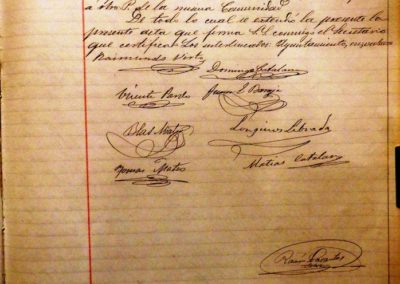 a otro P. de la misma Comunidad.
De todo lo cual se extendió la presente la
presente acta que firma conmigo el Secretario
que certifica. Los interlineados Ayuntamiento,
Raimundo Domingo Catalan
Vicente Pardo Juan
Blas Mateo Longinos Librada
Tomas Mateo Matias Catalan
Ramón